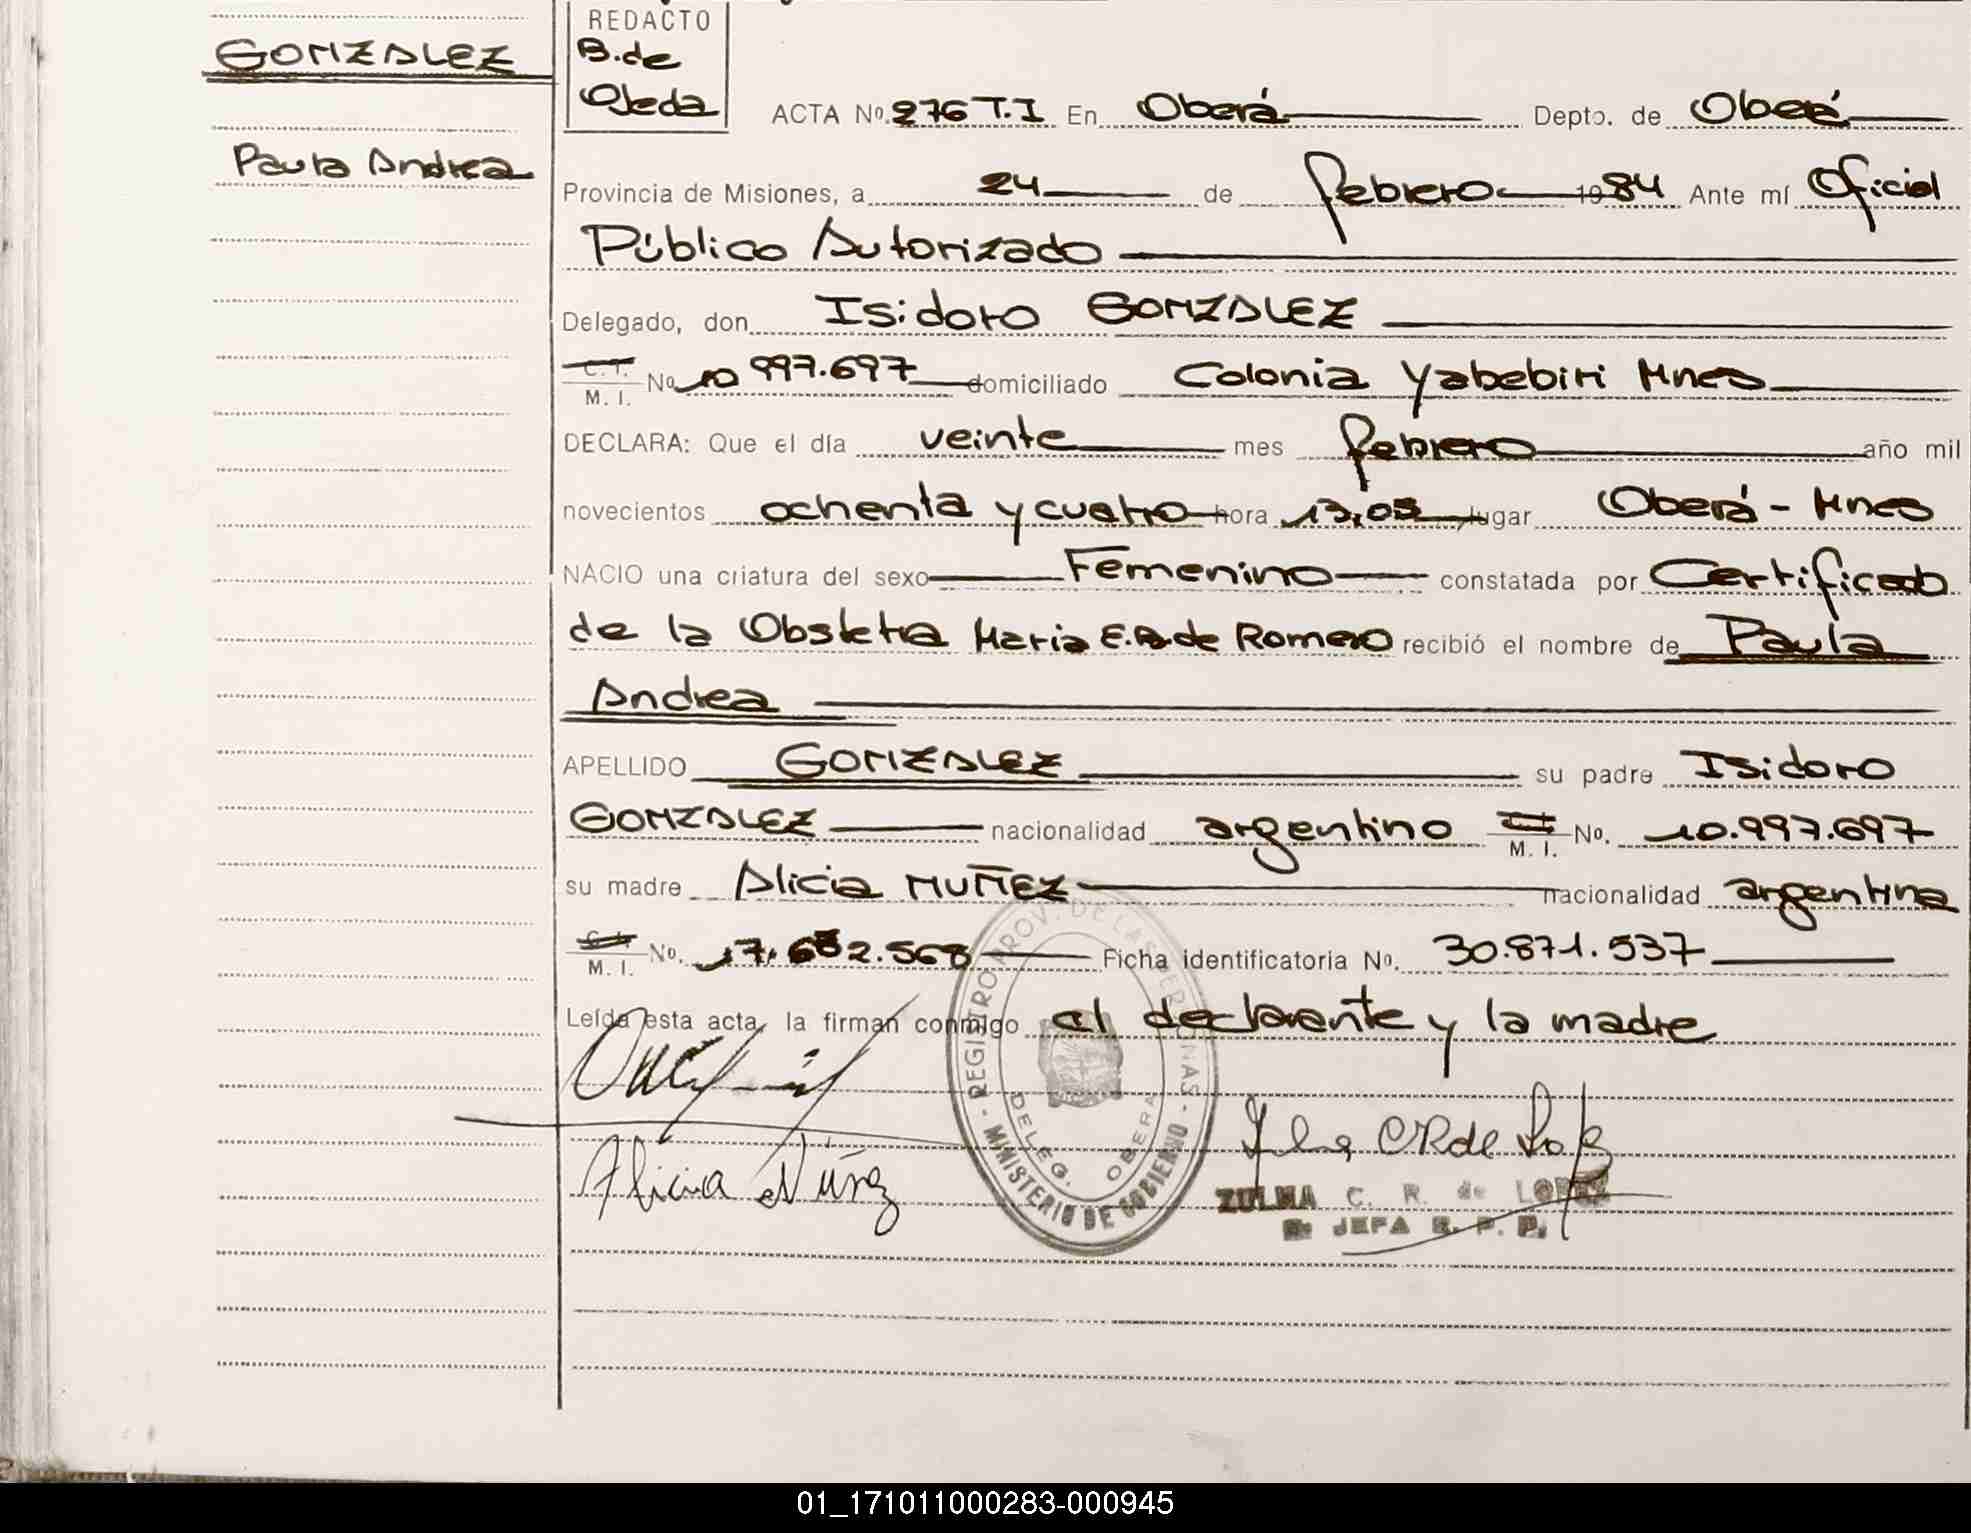 REDACTO
GONZALEZ
B. de
Ojeda
ACTA Nº 276 T.I En Oberá Depto. de Oberá
Paula Andrea
Provincia de Misiones, a 24 de febrero 1984 Ante mí Oficial
Público Autorizado
Delegado, don Isidoro GONZALEZ
C.I.
M. I. No 10 997.697 domiciliado Colonia Yabebiri Mnes
DECLARA: Que el día veinte mes febrero año mil
novecientos ochenta y cuatro hora 13,05 lugar Oberá - Mnes
NACIO una criatura del sexo Femenino constatada por Certificado
de la Obstetra Maria E. de Romero recibió el nombre de Paula
Andrea
APELLIDO GONZALEZ su padre Isidoro
GONZALEZ nacionalidad argentino M. I. No. 10.997.697
su madre Alicia NUÑEZ nacionalidad argentina
C. I.
M. I. No. 17.632.568 Ficha identificatoria No. 30.871.537
Leída esta acta, la firman conmigo el declarante y la madre
REGISTRO PROV. DE LAS PERSONAS
DELEG. OBERA
MINISTERIO DE GOBIERNO
Alicia Núñez
ZULMA C. R. de LOPEZ
JEFA R. P. P.
01_171011000283-000945